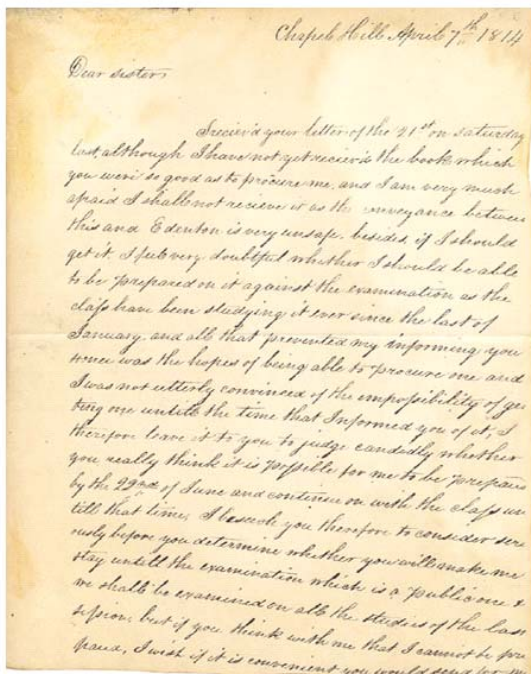 Chapel Hill April 7th 1814
Dear sister
I reciev'd your letter of the 21st on saturday
last, although I have not yet reciev'd the book which
you were so good as to procure me, and I am very much
afraid I shall not recieve it as the conveyance between
this and Edenton is very unsafe. besides, if I should
get it, I feel very doubtful whether I should be able
to be prepared on it against the examination as the
class have been studying it ever since the last of
January, and all that prevented my informing you
was the hopes of being able to procure one and
I was not utterly convinced of the impossibility of get
ting one untill the time that Informed you of it, I
therefore leave it to you to judge candedly whether
you really think it is possible for me to be prepared
by the 22nd of June and continue on with the class un
till that time, I beseech you therefore to consider seri
ously before you determine whether you will make me
stay untill the examination which is a Public one &
we shall be examined on all the studies of the last
session, but if you think with me that I cannot be pre
pared, I wish if it is convenient you would send for